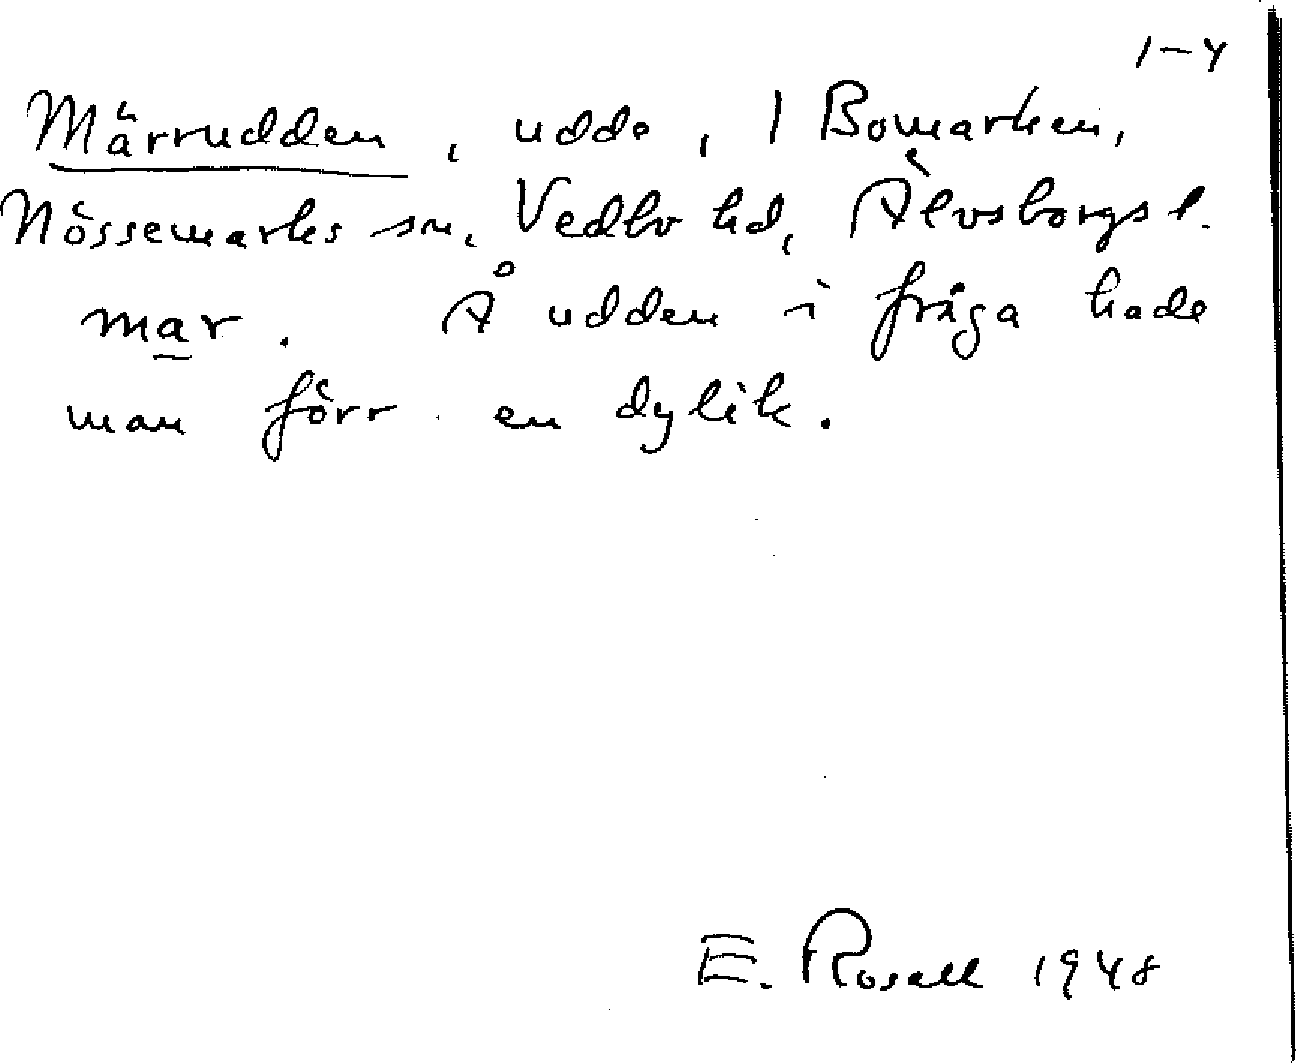 1–4
Märrudden, udde, 1 Bomarken,
Nössemarks sn, Vedbo hd, Älvsborgs l.
mar. Å udden i fråga hade
man förr en dylik.
E. Rosell 1948